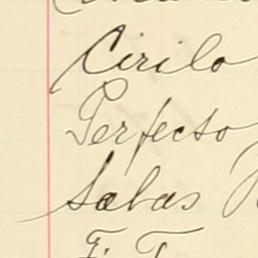 Cirilo
Perfecto
Sabas
F. T